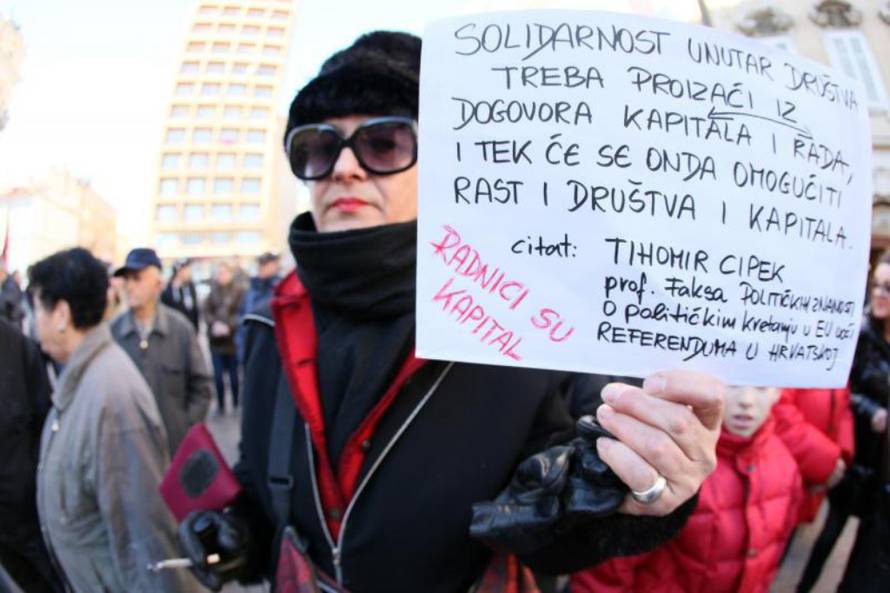 SOLIDARNOST UNUTAR DRUŠTVA
TREBA PROIZAĆI IZ
DOGOVORA KAPITALA I RADA,
I TEK ĆE SE ONDA OMOGUĆITI
RAST I DRUŠTVA I KAPITALA.
citat: TIHOMIR CIPEK
prof. Faksa POLITIČKIH ZNANOSTI
O političkim kretanju u EU uoči
REFERENDUMA U HRVATSKOJ
RADNICI SU
KAPITAL